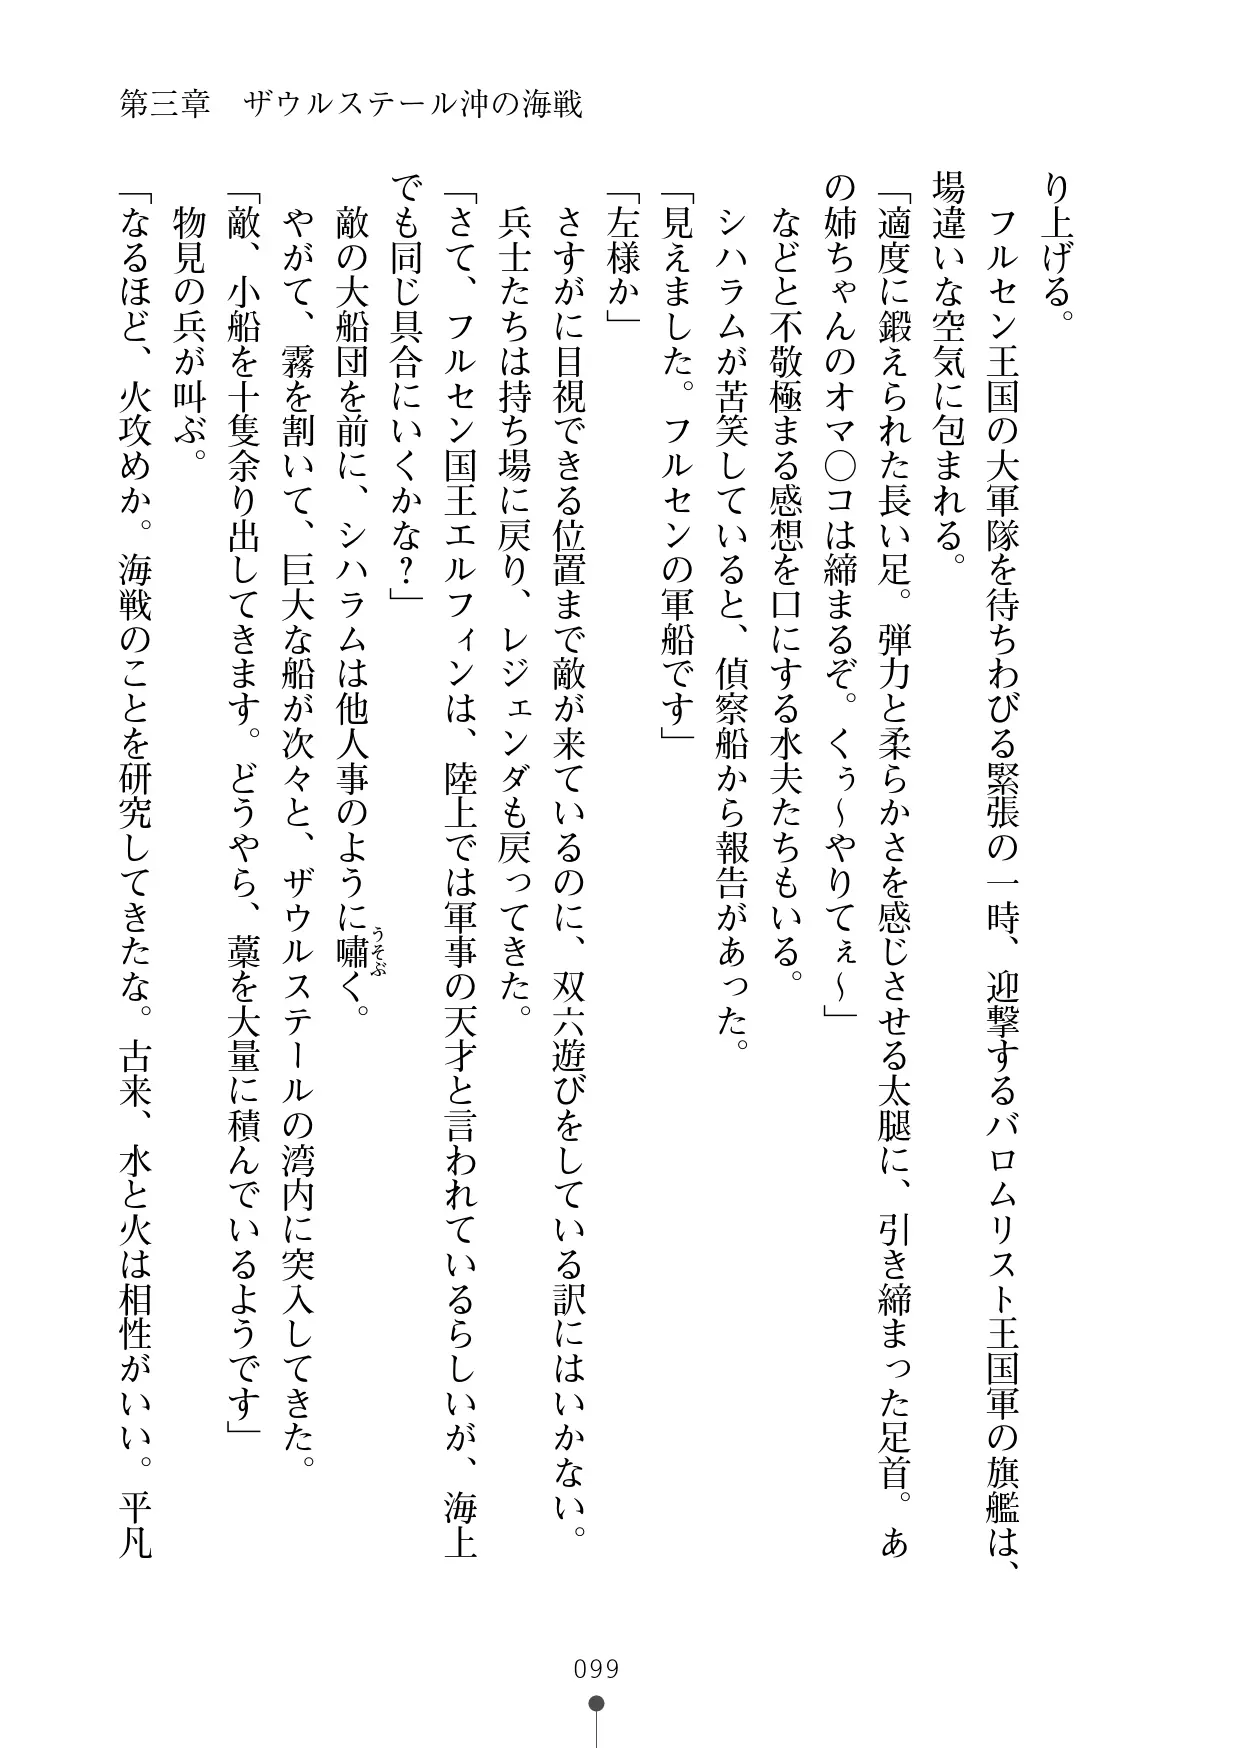 第三章　ザウルステール沖の海戦
り上げる。
　フルセン王国の大軍隊を待ちわびる緊張の一時、迎撃するバロムリスト王国軍の旗艦は、
場違いな空気に包まれる。
「適度に鍛えられた長い足。弾力と柔らかさを感じさせる太腿に、引き締まった足首。あ
の姉ちゃんのオマ〇コは締まるぞ。くぅ～やりてぇ～」
　などと不敬極まる感想を口にする水夫たちもいる。
　シハラムが苦笑していると、偵察船から報告があった。
「見えました。フルセンの軍船です」
「左様か」
　さすがに目視できる位置まで敵が来ているのに、双六遊びをしている訳にはいかない。
　兵士たちは持ち場に戻り、レジェンダも戻ってきた。
「さて、フルセン国王エルフィンは、陸上では軍事の天才と言われているらしいが、海上
でも同じ具合にいくかな？」
　敵の大船団を前に、シハラムは他人事のように嘯く。
うそぶ
　やがて、霧を割いて、巨大な船が次々と、ザウルステールの湾内に突入してきた。
「敵、小船を十隻余り出してきます。どうやら、藁を大量に積んでいるようです」
　物見の兵が叫ぶ。
「なるほど、火攻めか。海戦のことを研究してきたな。古来、水と火は相性がいい。平凡
099